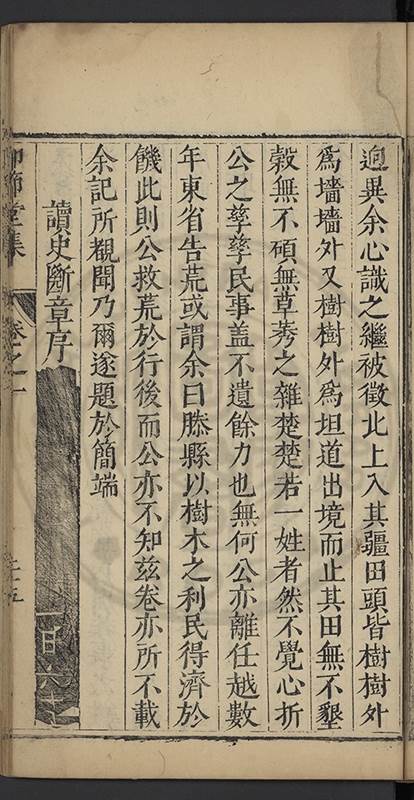 迥異余心識之繼被徵北上入其疆田頭皆樹樹外
爲墻墻外又樹樹外爲坦道出境而止其田無不墾
糓無不碩無草莠之雜楚楚若一姓者然不覺心折
公之孳孳民事盖不遺餘力也無何公亦離任越數
年東省告荒或謂余曰滕縣以樹木之利民得濟於
饑此則公救荒於行後而公亦不知茲卷亦所不載
余記所覩聞乃爾遂題於簡端
讀史斷章序
節堂集 卷之一